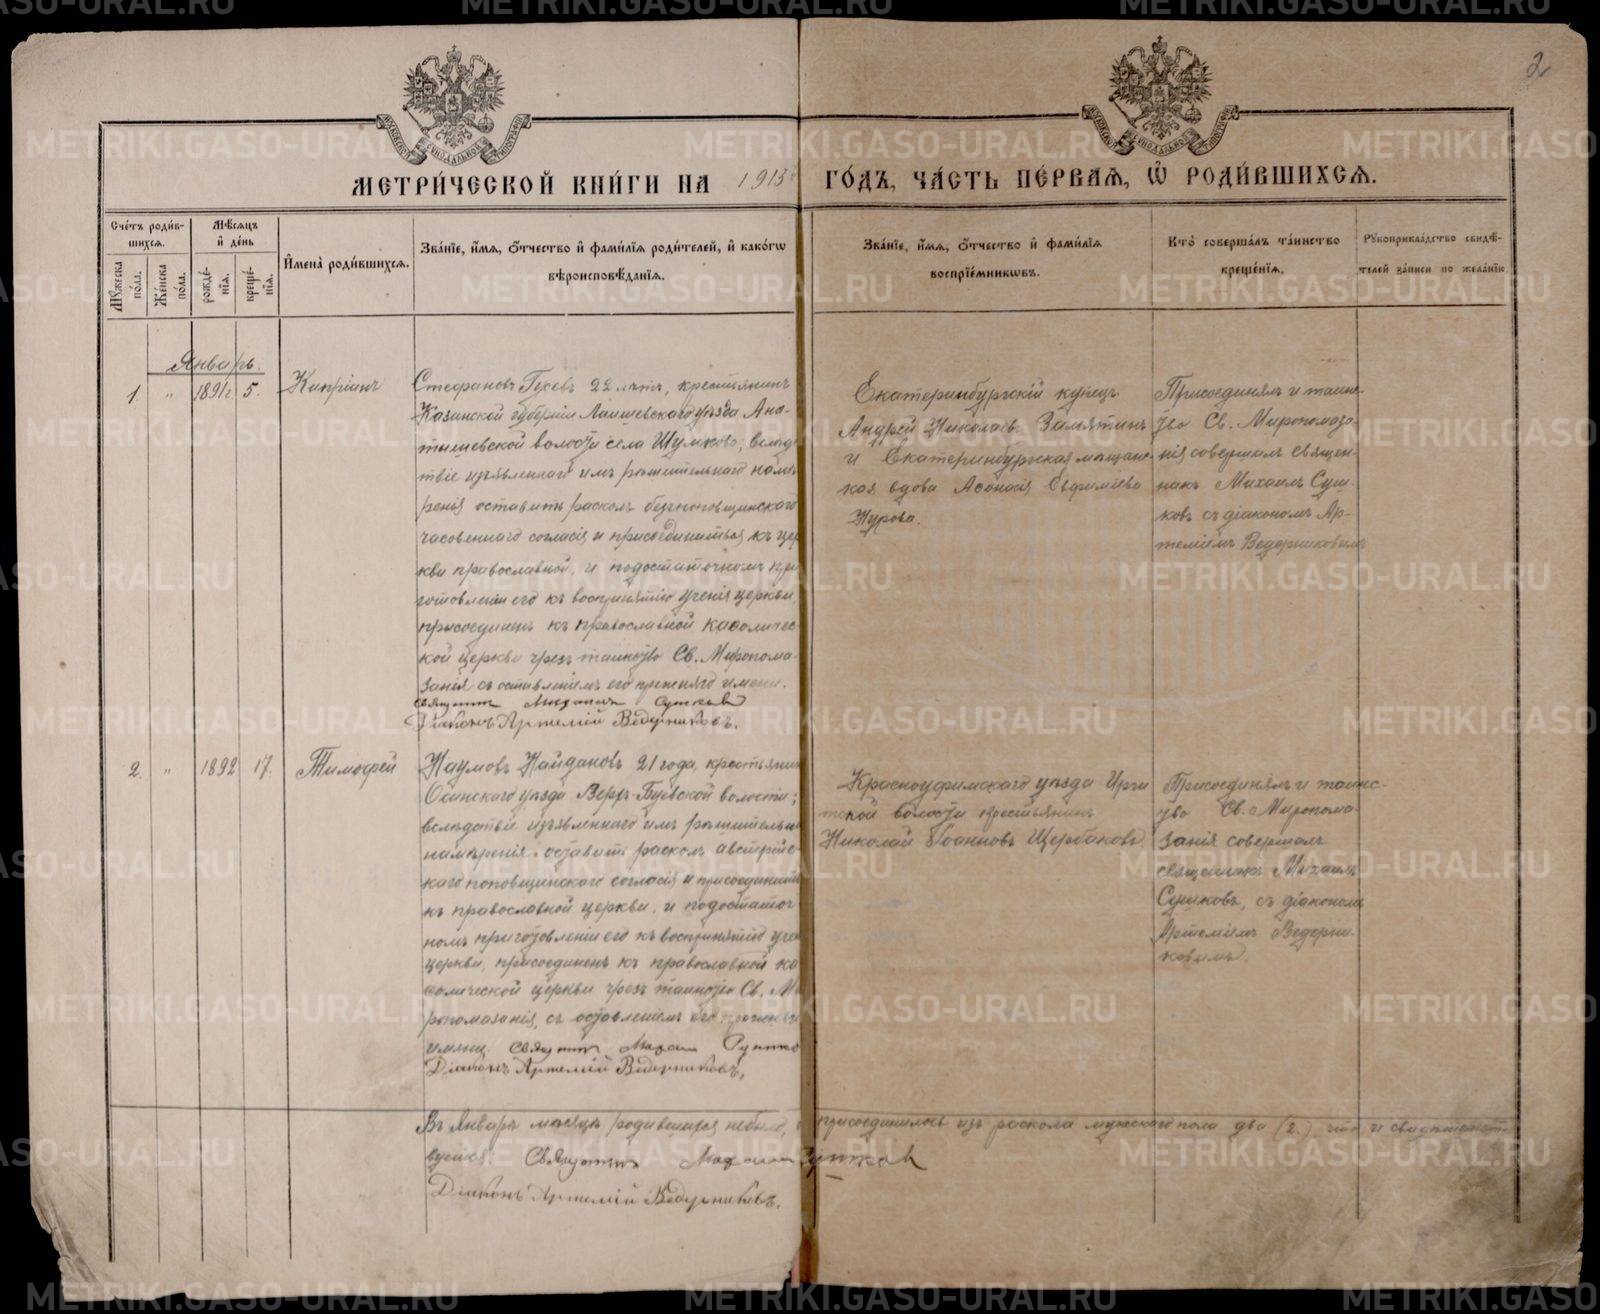 2
МЕТРИЧЕСКОЙ КНИГИ НА 1913 ГОДЪ, ЧАСТЬ ПЕРВАЯ, Ѿ РОДИВШИХСЯ.
Счетъ родив-
шихся.
Мѣсяцъ
и день
Мужеска
пола.
Женска
пола.
рожде-
нія.
креще-
нія.
Имена родившихся.
Званіе, имя, отчество и фамилія родителей, и какогѡ
вѣроисповѣданія.
Званіе, имя, отчество и фамилія
воспріемникѡвъ.
Кто совершалъ таинство
крещенія.
Рукоприкладство свидѣ-
телей записи по желанію.
Январь.
1. " 1891г 5. Кипріанъ
Стефановъ Гусевъ 22 лѣтъ, крестьянинъ
Казанской губерніи Лаишевскаго уѣзда Ана-
тышевской волости села Шумково, вслѣдс
твіе изъявленнаго имъ рѣшительнаго намѣ
ренія оставить расколъ безпоповщинскаго
часовеннаго согласія и присоединиться къ цер
кви православной, и подостаточномъ при
готовленіи его къ воспринятію ученія церкви
присоединенъ къ православной каѳоличес-
кой церкви чрезъ таинство Св. Миропома-
занія съ оставленіемъ его прежняго имени.
Священникъ Михаилъ Сушковъ
Діаконъ Артемій Ведерниковъ.
Екатеринбургскій купецъ
Андрей Николаевъ Замятинъ
и Екатеринбургская мѣщанс-
кая вдова Аѳонасія Евфиміева
Нурова.
Присоединялъ и таинс-
тво Св. Миропомаза-
нія совершалъ священ-
никъ Михаилъ Суш-
ковъ съ діакономъ Ар-
теміемъ Ведерниковымъ
2. " 1892 17. Тимоѳей
Наумовъ Найдановъ 21 года, крестьянин
Осинскаго уѣзда Верхъ-Буевской волости;
вслѣдствіе изъявленнаго имъ рѣшительна
намѣренія оставить расколъ австрійс-
каго поповщинскаго согласія и присоединиться
къ православной церкви, и подостаточ
номъ приготовленіи его къ воспринятію учен
церкви, присоединенъ къ православной ка
ѳолической церкви чрезъ таинство Св. Ми
ропомазанія, съ оставленіемъ его прежняго
имени. Священникъ Михаилъ Сушков
Діаконъ Артемій Ведерниковъ.
Красноуфимскаго уѣзда Ирги
нской волости крестьянинъ
Николай Іоанновъ Щербаковъ
Присоединялъ и таинс-
тво Св. Миропома-
занія совершалъ
священникъ Михаилъ
Сушковъ, съ діакономъ
Артеміемъ Ведерни-
ковымъ.
Въ Январѣ мѣсяцѣ родившихся не было, присоединилось изъ раскола мужскаго пола два (2.), что и свидѣтельст
вуетъ: Священникъ Михаилъ Сушковъ
Діаконъ Артемій Ведерниковъ.
METRIKI.GASO-URAL.RU